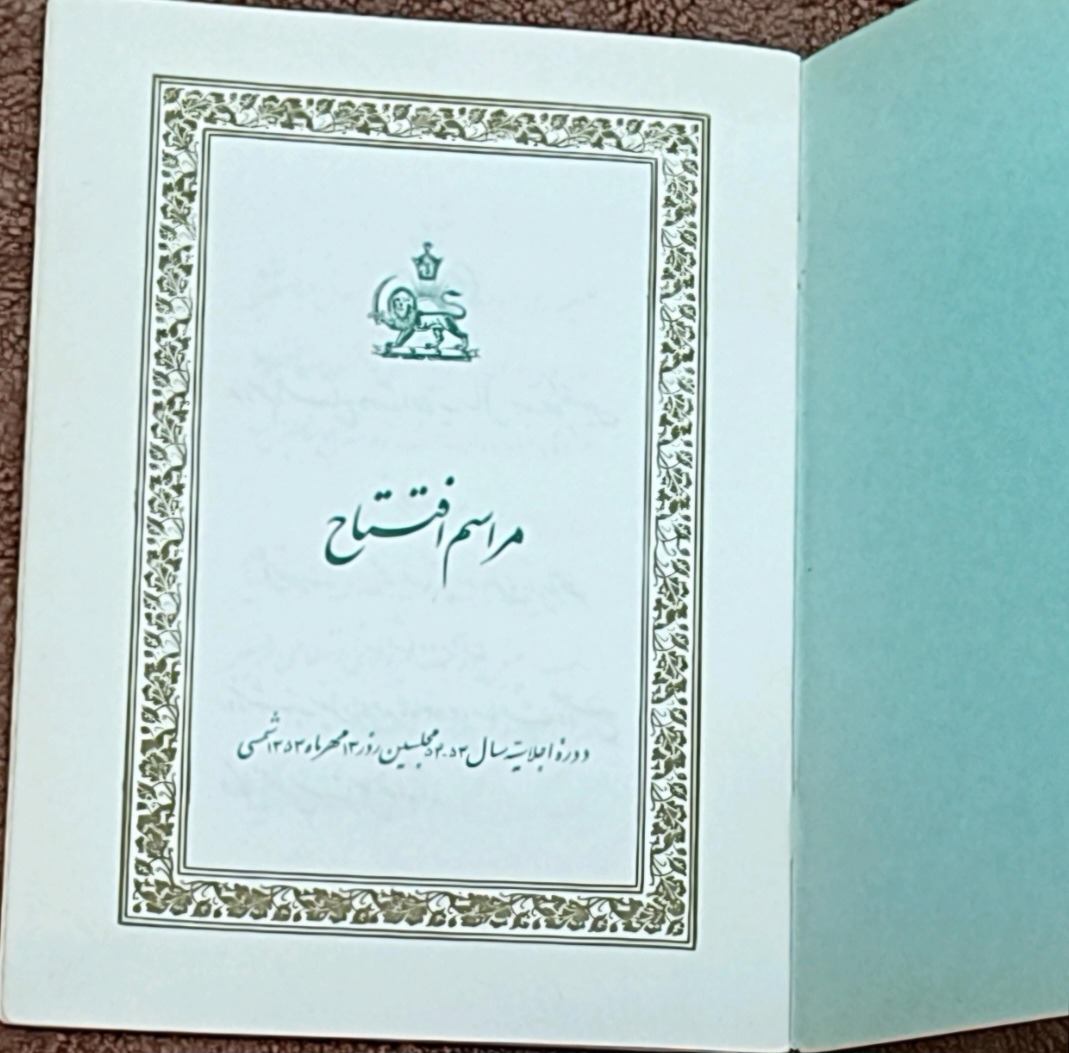 مراسم افتتاح
دورهٔ اجلاسیه سال ۵۳-۵۲ مجلسین روز ۱۳ مهر ماه ۱۳۵۳ شمسی